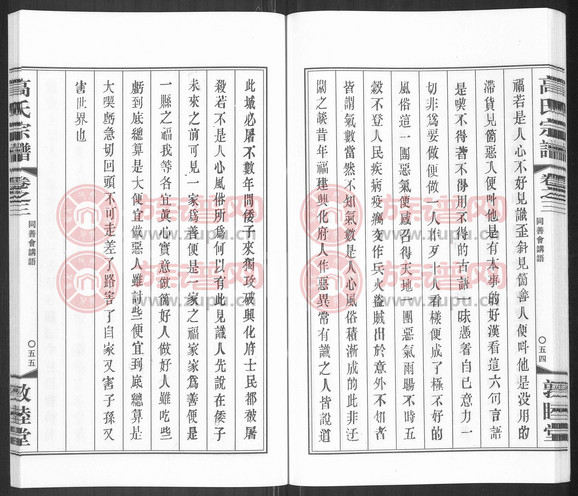 高氏宗譜
卷之三
同善會講語
〇五四
敦睦堂
福若是人心不好見識歪斜見箇善人便叫他是沒用的
滯貨見箇惡人便叫他是有本事的好漢看這六句言語
是喫不得著不得用不得的古語一味慿著自已意力一
切非為要做便做一人作歹人人看樣便成了極不好的
風俗這一團惡氣便感名得天地一團惡氣雨腸不時五
穀不登人民疾病疫癘交作兵火盜賊出於意外不知者
皆謂氣數當然不知氣數是人心風俗積漸成的此非迂
闊之談昔年福建興化府人作惡異常有識之人皆說道
此城必屠不數年間倭子來獨攻破興化府士民都被屠
殺若不是人心風俗所為何以有此見識人先說在倭子
未來之前可見一家為善便是一家之福家家為善便是
一縣之福我等各宜眞心實意做箇好人做好人雖吃些
虧到底總算是大便宜做惡人雖討些便宜到底總算是
大喫虧急切回頭不可走差了路害了自家又害子孫又
害世界也
高氏宗譜
卷之三
同善會講語
〇五五
敦睦堂
族譜网
www.zupu.cn